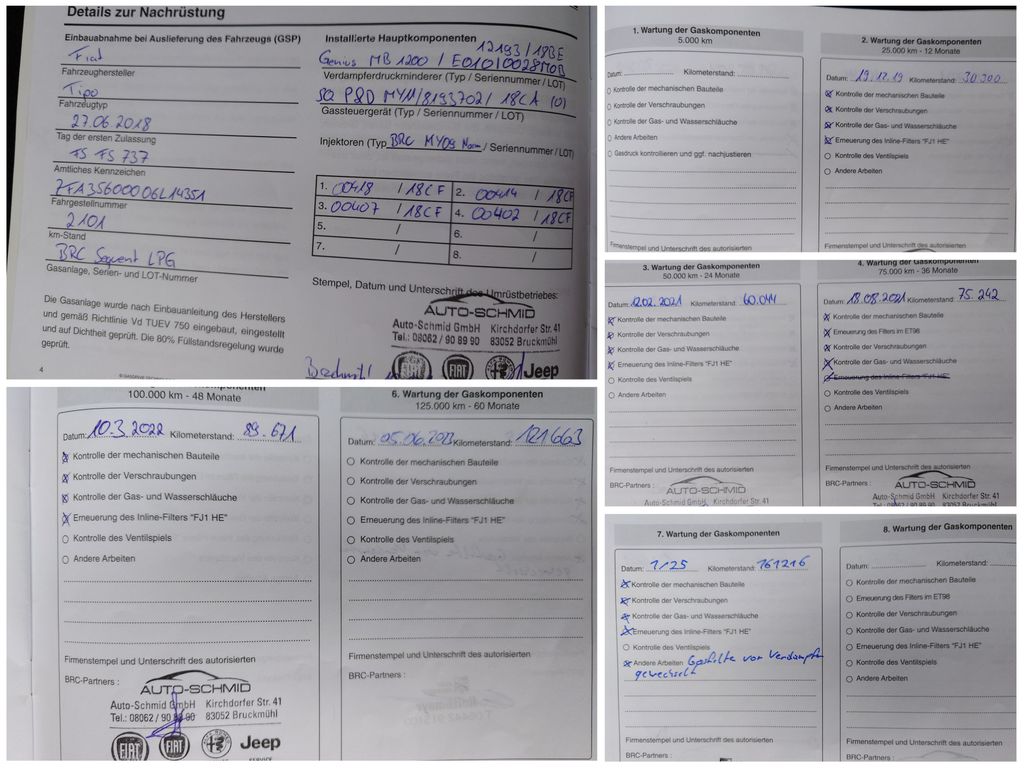 Details zur Nachrüstung
Einbauabnahme bei Auslieferung des Fahrzeugs (GSP)
Fiat
Fahrzeughersteller
Tipo
Fahrzeugtyp
27.06 2018
Tag der ersten Zulassung
FS FS 737
Amtliches Kennzeichen
ZFA35600006L14351
Fahrgestellnummer
2101
km-Stand
BRC Sequent LPG
Gasanlage, Serien- und LOT-Nummer
Die Gasanlage wurde nach Einbauanleitung des Herstellers
und gemäß Richtlinie Vd TUEV 750 eingebaut, eingestellt
und auf Dichtheit geprüft. Die 80% Füllstandsregelung wurde
geprüft.
4
Installierte Hauptkomponenten
12193 / 18BE
Genius MB 1200 / E01010028MOB
Verdampferdruckminderer (Typ / Seriennummer / LOT)
SQ P&D MY11/81937021 18CA (0)
Gassteuergerät (Typ / Seriennummer / LOT)
Injektoren (Typ BRC MY09 / Seriennummer / LOT)
1. 00418 / 18CF 2. 00414 / 18CF
3. 00407 / 18CF 4. 00402 / 18CF
5. / 6. /
7. / 8.
Stempel, Datum und Unterschrift des Umrüstbetriebes:
AUTO-SCHMID
Auto-Schmid GmbH Kirchdorfer Str. 41
Tel.: 08062 / 90 89 90 83052 Bruckmühl
FIAT Jeep
1. Wartung der Gaskomponenten
5.000 km
Datum: Kilometerstand:
Kontrolle der mechanischen Bauteile
Kontrolle der Verschraubungen
Kontrolle der Gas- und Wasserschläuche
Andere Arbeiten
Gasdruck kontrollieren und ggf. nachjustieren
Firmenstempel und Unterschrift des autorisierten
2. Wartung der Gaskomponenten
25.000 km - 12 Monate
Datum: 19.12.19 Kilometerstand: 30.300
Kontrolle der mechanischen Bauteile
Kontrolle der Verschraubungen
Kontrolle der Gas- und Wasserschläuche
Erneuerung des Inline-Filters "FJ1 HE"
Kontrolle des Ventilspiels
Andere Arbeiten
Firmenstempel und Unterschrift des autorisierten
3. Wartung der Gaskomponenten
50.000 km - 24 Monate
Datum: 12.02.2021 Kilometerstand: 60.044
Kontrolle der mechanischen Bauteile
Kontrolle der Verschraubungen
Kontrolle der Gas- und Wasserschläuche
Erneuerung des Inline-Filters "FJ1 HE"
Kontrolle des Ventilspiels
Andere Arbeiten
Firmenstempel und Unterschrift des autorisierten
BRC-Partners :
AUTO-SCHMID
Auto-Schmid GmbH Kirchdorfer Str. 41
4. Wartung der Gaskomponenten
75.000 km - 36 Monate
Datum: 18.08.2021 Kilometerstand: 75.242
Kontrolle der mechanischen Bauteile
Erneuerung des Filters im ET98
Kontrolle der Verschraubungen
Kontrolle der Gas- und Wasserschläuche
Erneuerung des Inline-Filters "FJ1 HE"
Kontrolle des Ventilspiels
Andere Arbeiten
Firmenstempel und Unterschrift des autorisierten
BRC-Partners :
AUTO-SCHMID
Auto-Schmid GmbH Kirchdorfer Str. 41
Tel.: 08062 / 90 89 90 83052 Bruckmühl
100.000 km - 48 Monate
Datum: 10.3.2022 Kilometerstand: 89.671
Kontrolle der mechanischen Bauteile
Kontrolle der Verschraubungen
Kontrolle der Gas- und Wasserschläuche
Erneuerung des Inline-Filters "FJ1 HE"
Kontrolle des Ventilspiels
Andere Arbeiten
Firmenstempel und Unterschrift des autorisierten
BRC-Partners :
AUTO-SCHMID
Auto-Schmid GmbH Kirchdorfer Str. 41
Tel.: 08062 / 90 89 90 83052 Bruckmühl
FIAT FIAT Jeep
6. Wartung der Gaskomponenten
125.000 km - 60 Monate
Datum: 05.06.2023 Kilometerstand: 121663
Kontrolle der mechanischen Bauteile
Kontrolle der Verschraubungen
Kontrolle der Gas- und Wasserschläuche
Erneuerung des Inline-Filters "FJ1 HE"
Kontrolle des Ventilspiels
Andere Arbeiten
Firmenstempel und Unterschrift des autorisierten
BRC-Partners :
7. Wartung der Gaskomponenten
Datum: 1/25 Kilometerstand: 161216
Kontrolle der mechanischen Bauteile
Kontrolle der Verschraubungen
Kontrolle der Gas- und Wasserschläuche
Erneuerung des Inline-Filters "FJ1 HE"
Kontrolle des Ventilspiels
Andere Arbeiten Gasfilter vor Verdampfer
gewechselt
Firmenstempel und Unterschrift des autorisierten
BRC-Partners :
8. Wartung der Gaskomponenten
Datum: Kilometerstand:
Kontrolle der mechanischen Bauteile
Erneuerung des Filters im ET98
Kontrolle der Verschraubungen
Kontrolle der Gas- und Wasserschläuche
Erneuerung des Inline-Filters "FJ1 HE"
Kontrolle des Ventilspiels
Andere Arbeiten
Firmenstempel und Unterschrift des autorisierten
BRC-Partners :